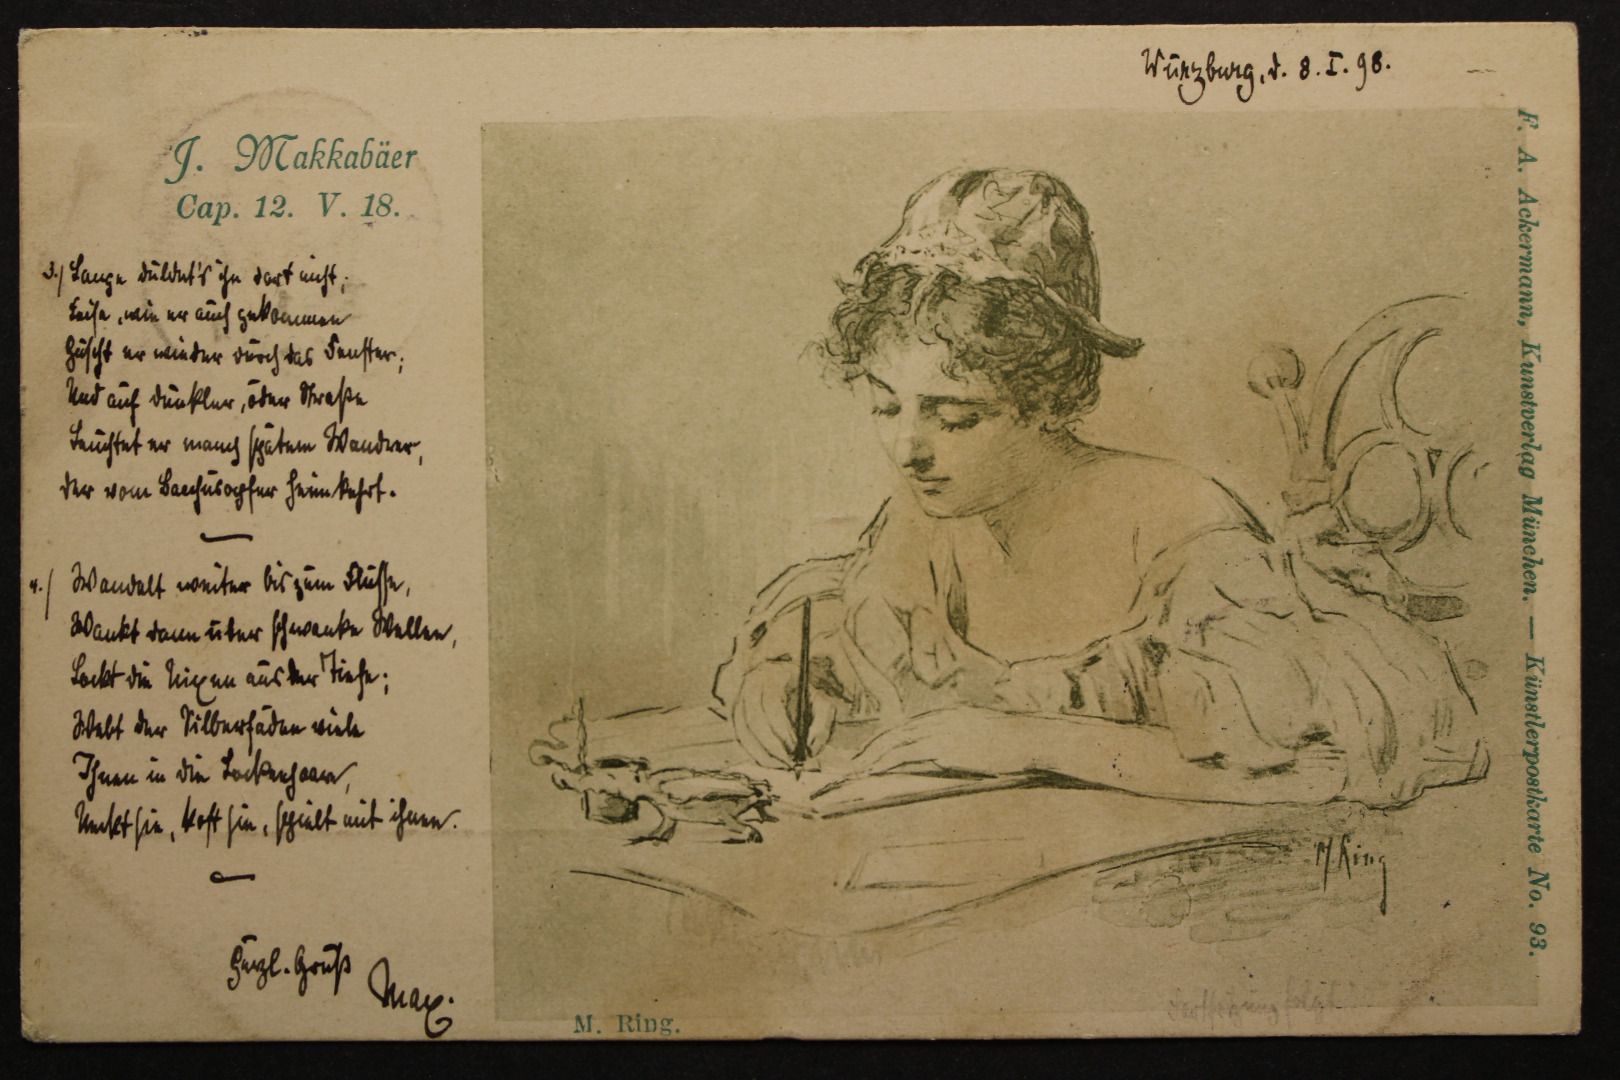 Würzburg, d. 8. I. 98.
J. Makkabäer
Cap. 12. V. 18.
3./ Lange duldet's ihn dort nicht;
Leise, wie er auch gekommen
Huscht er wieder durch das Fenster;
Und auf dunkler, öder Straße
Leuchtet er manch spätem Wandrer,
der vom Bacchusopfer heimkehrt.
4./ Wandelt weiter bis zum Flusse,
Wankt dann über schwanke Wellen,
Lockt die Nixen aus der Tiefe;
Webt der Silberfäden viele
Ihnen in die Lockenhaare,
Neckt sie, kost sie, spielt mit ihnen.
Herzl. Gruß
Max.
M. Ring
M. Ring.
Fortsetzung folgt!
F. A. Ackermann, Kunstverlag München. — Künstlerpostkarte No. 93.